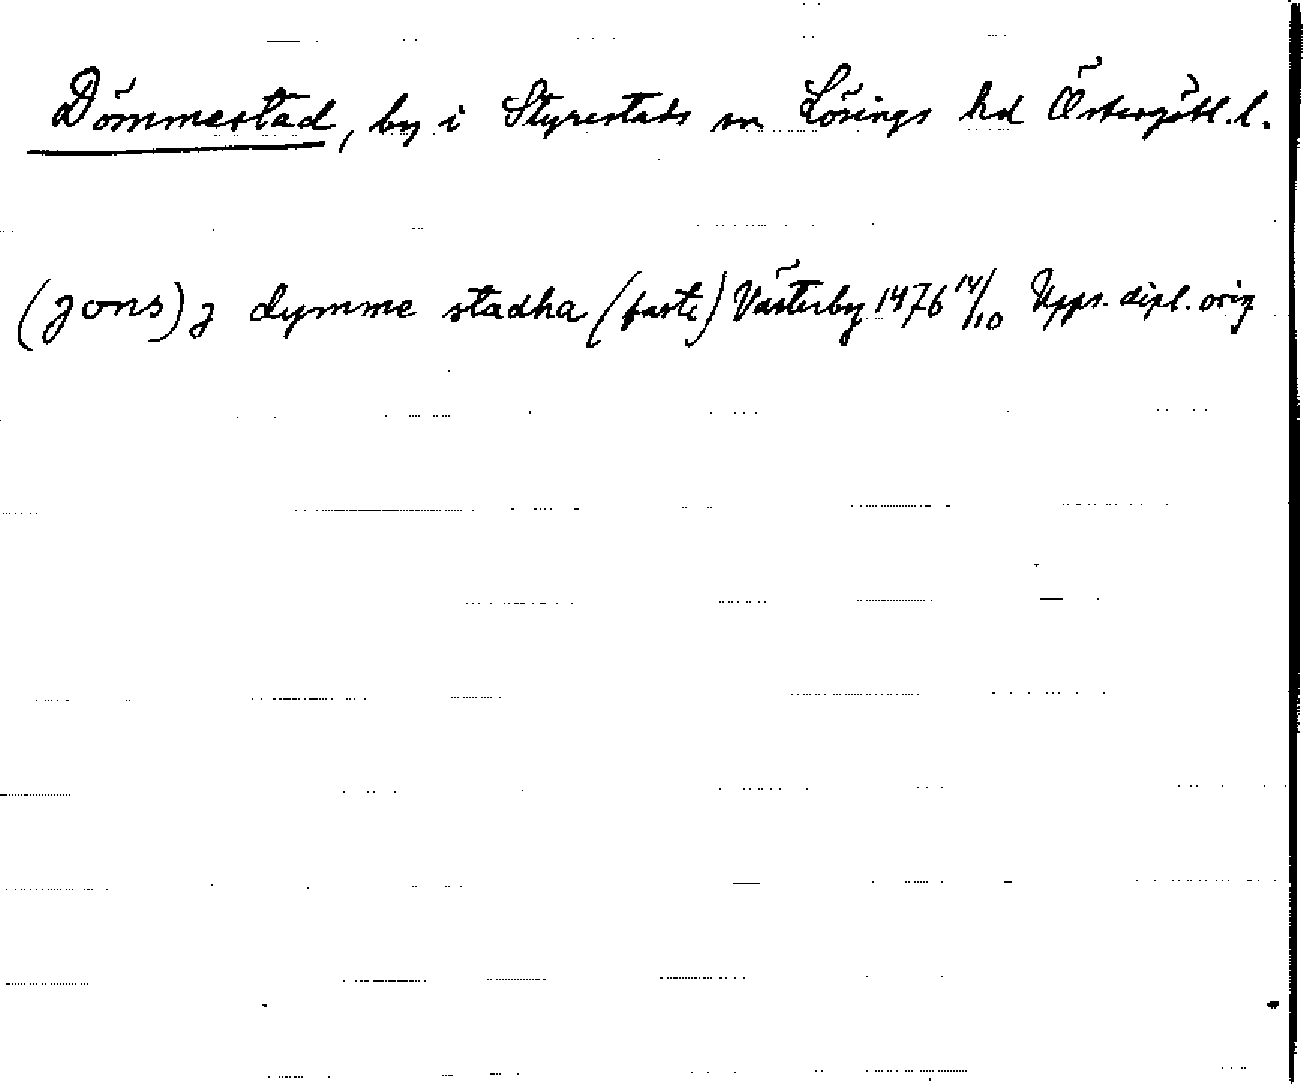 Dömmestad, by i Styrestads sn Lösings hd Östergötl. l.
(jons) j dymme stadha (faste) Västerby 1476 14/10 Upps. dipl. orig